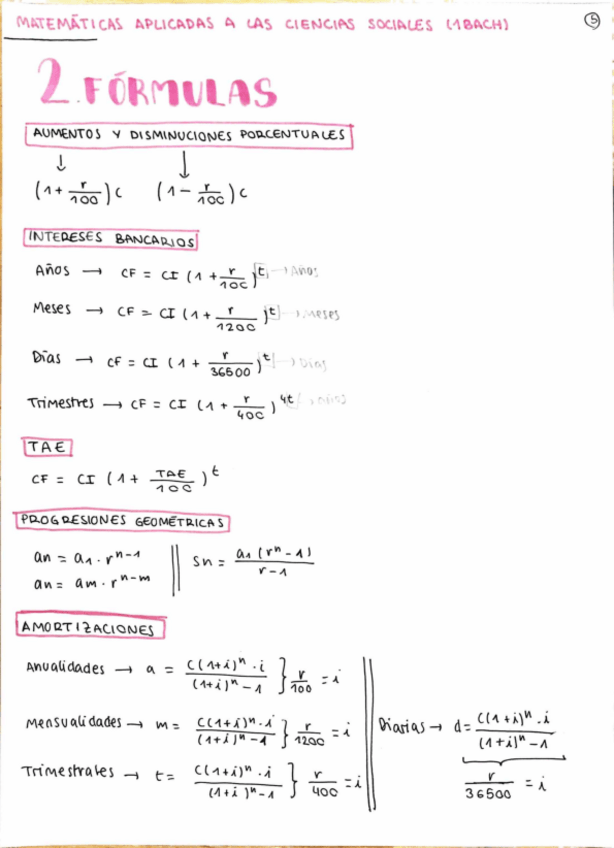 MATEMÁTICAS APLICADAS A LAS CIENCIAS SOCIALES (1BACH)
5
2. FÓRMULAS
AUMENTOS Y DISMINUCIONES PORCENTUALES
↓ ↓
(1 + r/100) C (1 - r/100) C
INTERESES BANCARIOS
Años → CF = CI (1 + r/100)^t → Años
Meses → CF = CI (1 + r/1200)^t → Meses
Días → CF = CI (1 + r/36500)^t → Días
Trimestres → CF = CI (1 + r/400)^4t → años
TAE
CF = CI (1 + TAE/100)^t
PROGRESIONES GEOMÉTRICAS
an = a1 · r^n-1 || Sn = a1 (r^n - 1) / r - 1
an = am · r^n-m
AMORTIZACIONES
Anualidades → a = C(1+i)^n · i / (1+i)^n - 1 } r/100 = i
Mensualidades → m = C(1+i)^n · i / (1+i)^n - 1 } r/1200 = i
Trimestrales → t = C(1+i)^n · i / (1+i)^n - 1 } r/400 = i
Diarias → d = C(1+i)^n · i / (1+i)^n - 1
r/36500 = i